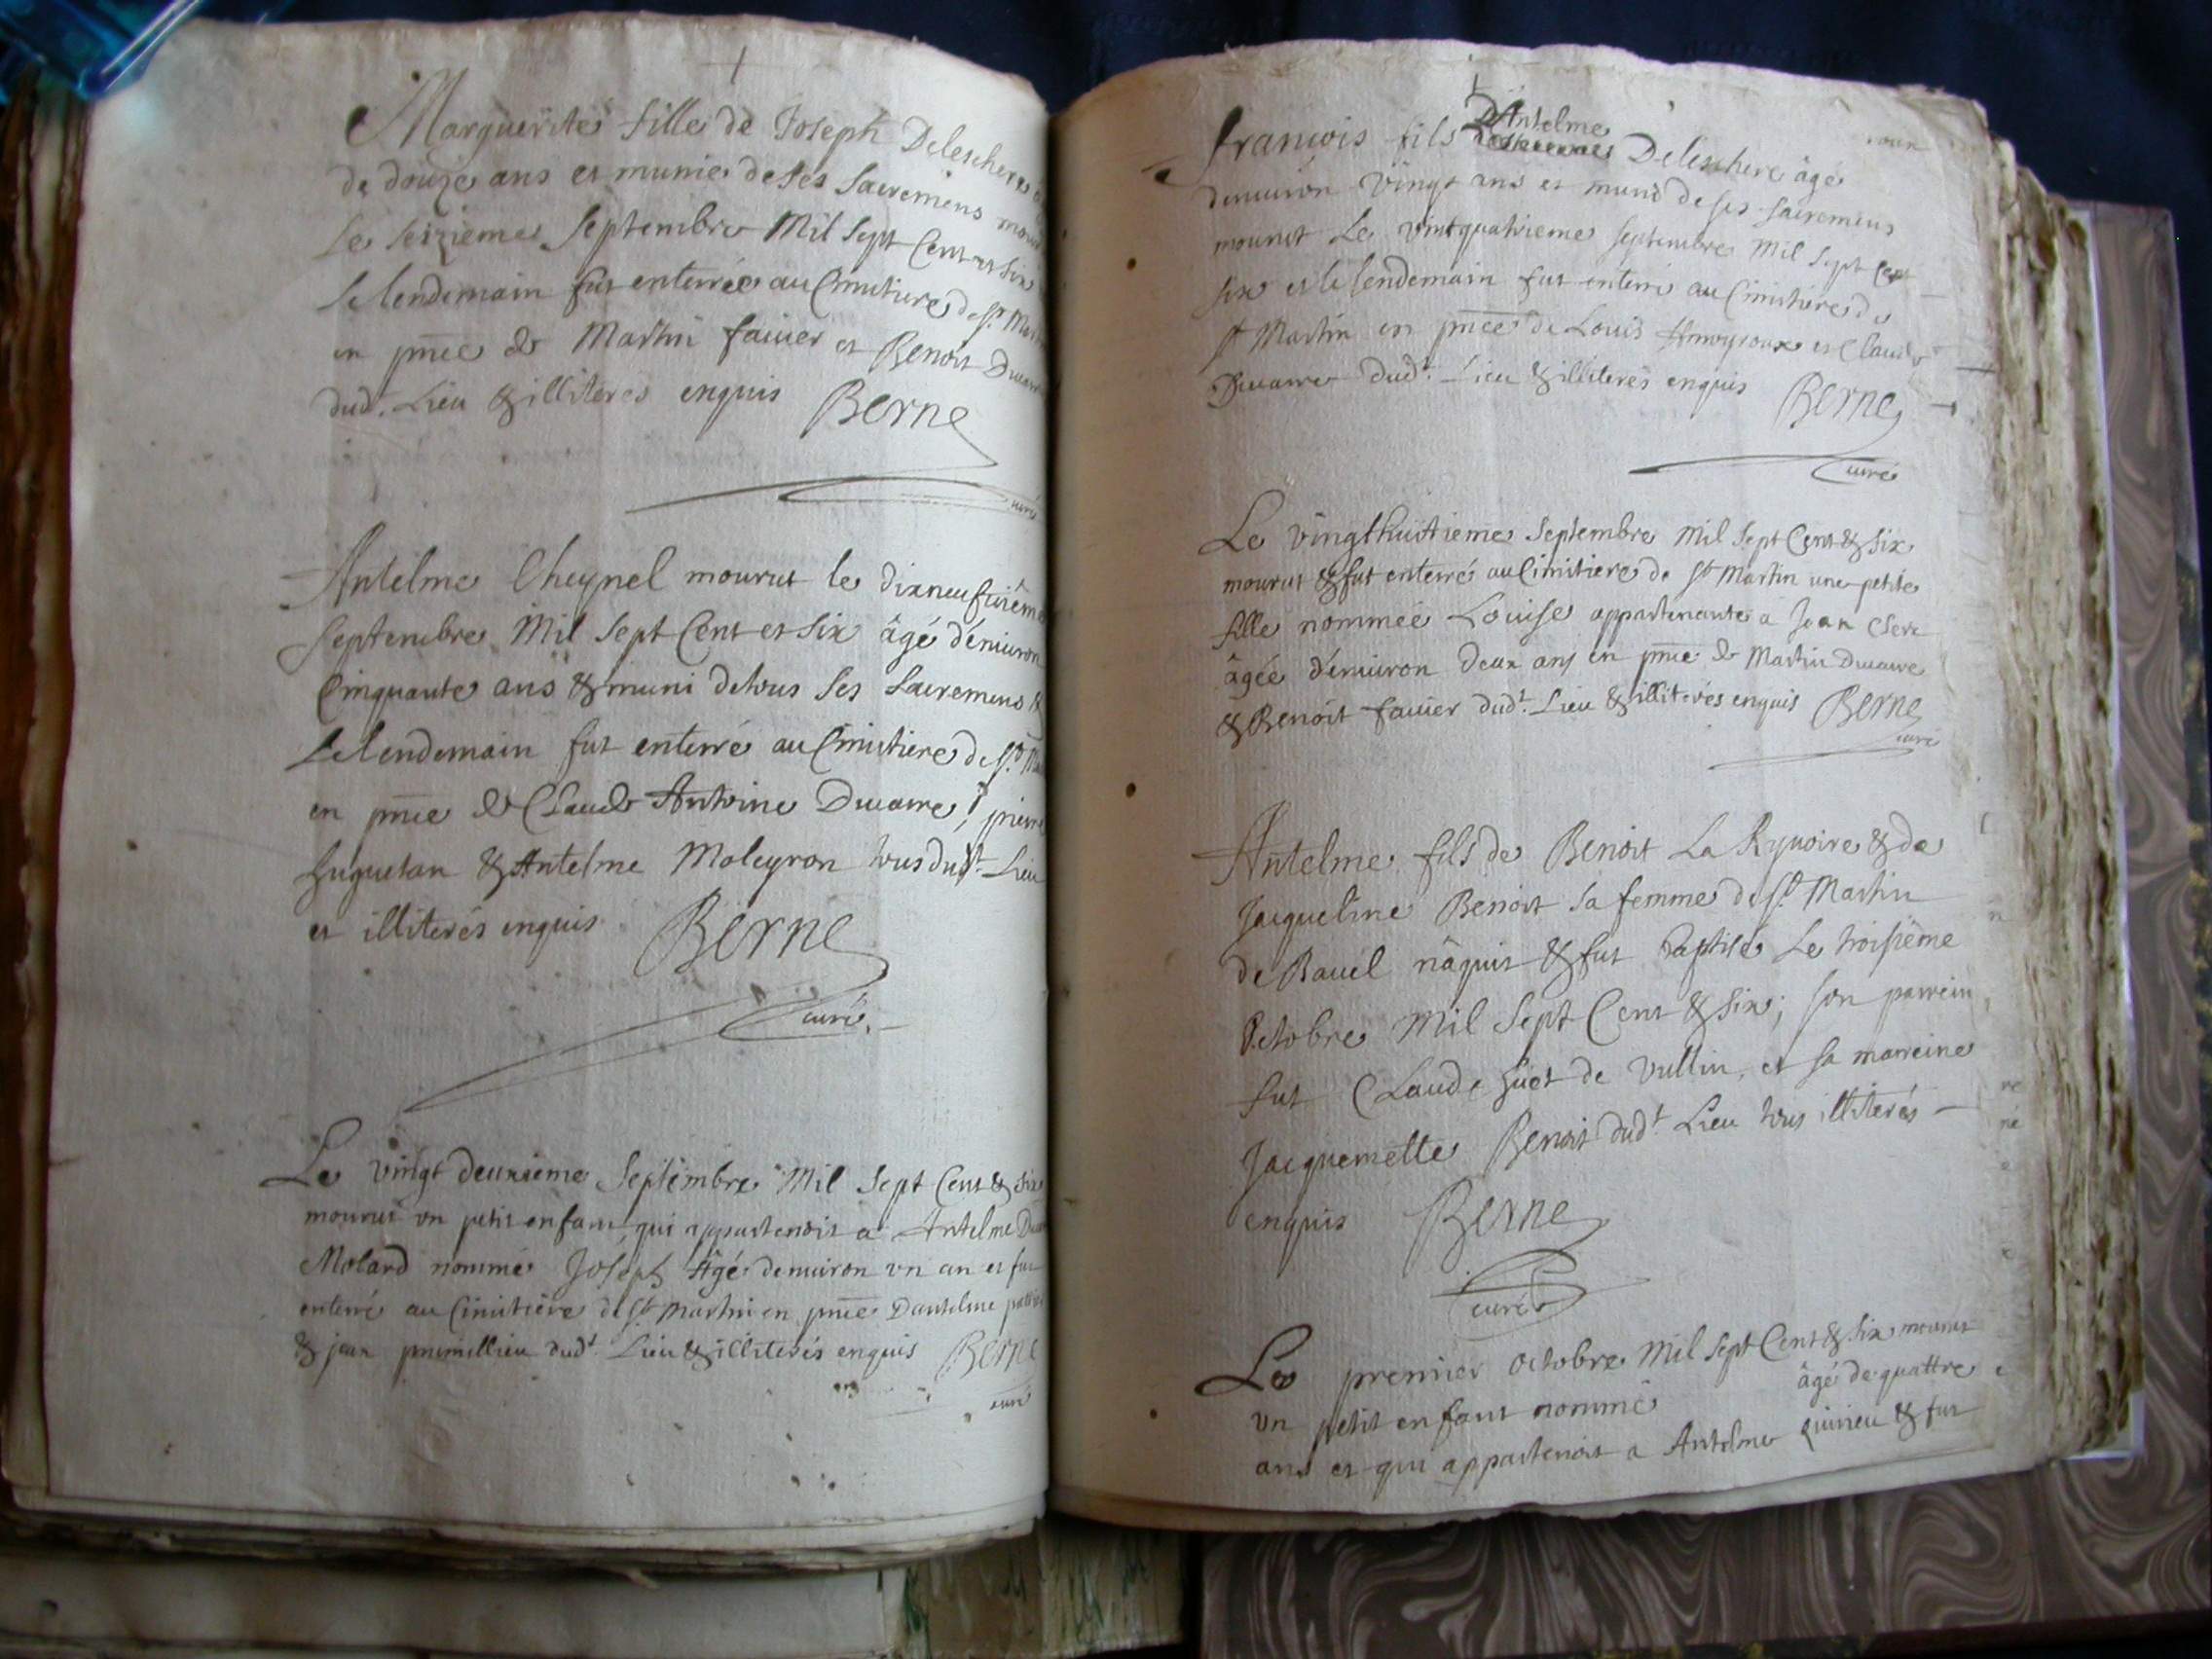 Marguerite fille de Joseph Deleschere
de douze ans et munie de ses sacremens
le seizieme Septembre Mil Sept Cent et six
le lendemain fut enterrée au Cimitiere de St
en pnce de Martin fauier et Benoit
dudt. Lieu & illiterés enquis Berne
curé
Antelme Cheynel mourut le dixneufuiême
Septembre Mil Sept Cent et six âgé d'énuiron
Cinquante ans & muni de tous ses sacremens &
le lendemain fut enterré au Cimitiere de St.
en pnce de Claude Antoine Duuaure, pierre
huguetan & Antelme Moleyron tous dudt. Lieu
et illiterés enquis Berne
curé.
Le vingt deuxieme Septembre Mil Sept Cent & six
mourut vn petit enfant qui appartenoit a Antelme
Molard nommé Joseph Agé denuiron vn an et fut
enterré au Cimitiére de St. Martin en pnce Dantelme
& jean primillieu dudt. Lieu & illiterés enquis Berne
curé
francois fils D'Antelme Deleschere âgé
denuiron vingt ans et muni de ses sacremens
mourut Le vintquatrieme septembre Mil Sept Cent
six et le lendemain fut enterré au Cimitiére de
St Martin en pnce de Louis et Claude
Duuaure dudt. Lieu & illiterés enquis Berne
curé
Le vingthuitieme Septembre Mil Sept Cent & six
mourut & fut enterré au Cimitiere de St Martin une petite
fille nommée Louise appartenante a Jean
âgée d'énuiron deux ans en pnce de Martin Duuaure
& Benoit fauier dudt. Lieu & illiterés enquis Berne
curé
Antelme fils de Benoit La Ryuoire & de
Jacqueline Benoit sa femme de St. Martin
de Bauel nâquit & fut baptisé Le troisiême
Octobre Mil Sept Cent & six; son parrein
fut Claude huet de vullin, et sa marreine
Jacquemette Benoit dudt. Lieu tous illiterés
enquis Berne
curé
Le premier octobre Mil Sept Cent & six mourut
vn petit enfant nommé âgé de quattre
ans et qui appartenoit a Antelme quinieu & fut